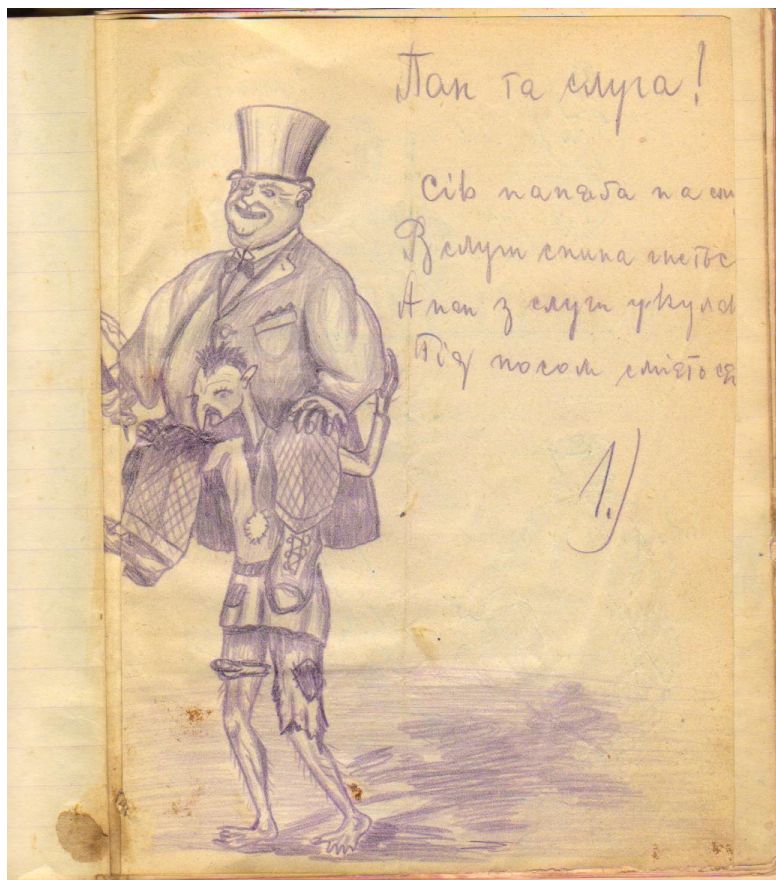 Пан та слуга!
Сів на
В слуги спина гнетьс
А пан з слуги у кула
Під носом сміється
1.)